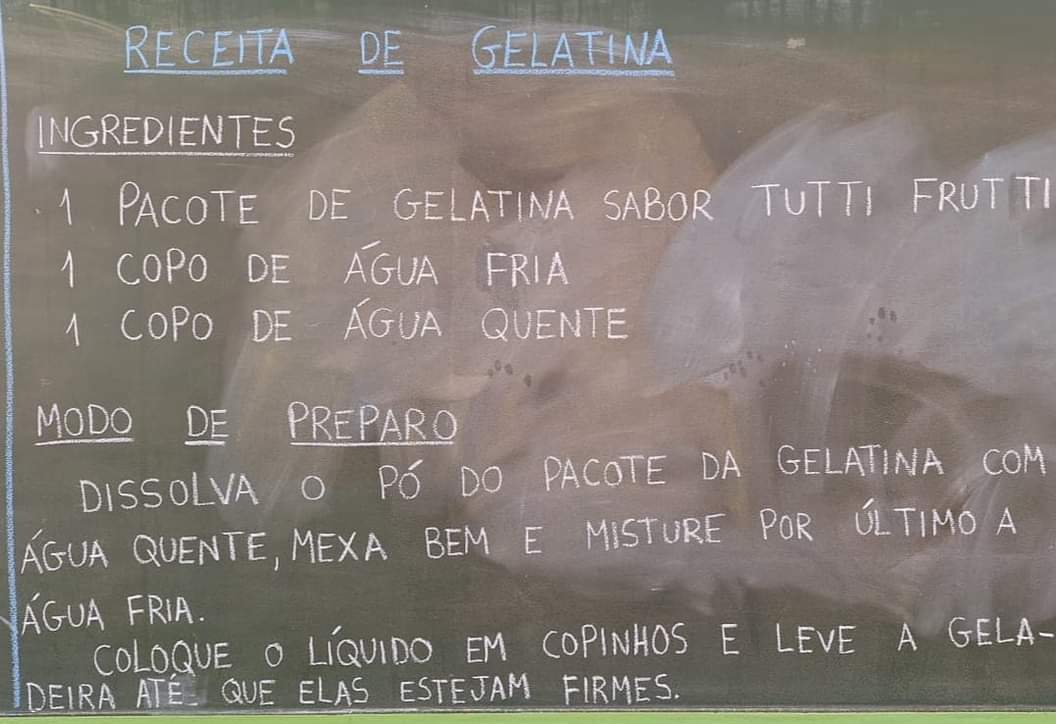 RECEITA DE GELATINA
INGREDIENTES
1 PACOTE DE GELATINA SABOR TUTTI FRUTTI
1 COPO DE ÁGUA FRIA
1 COPO DE ÁGUA QUENTE
MODO DE PREPARO
DISSOLVA O PÓ DO PACOTE DA GELATINA COM
ÁGUA QUENTE, MEXA BEM E MISTURE POR ÚLTIMO A
ÁGUA FRIA.
COLOQUE O LÍQUIDO EM COPINHOS E LEVE A GELA-
DEIRA ATÉ QUE ELAS ESTEJAM FIRMES.